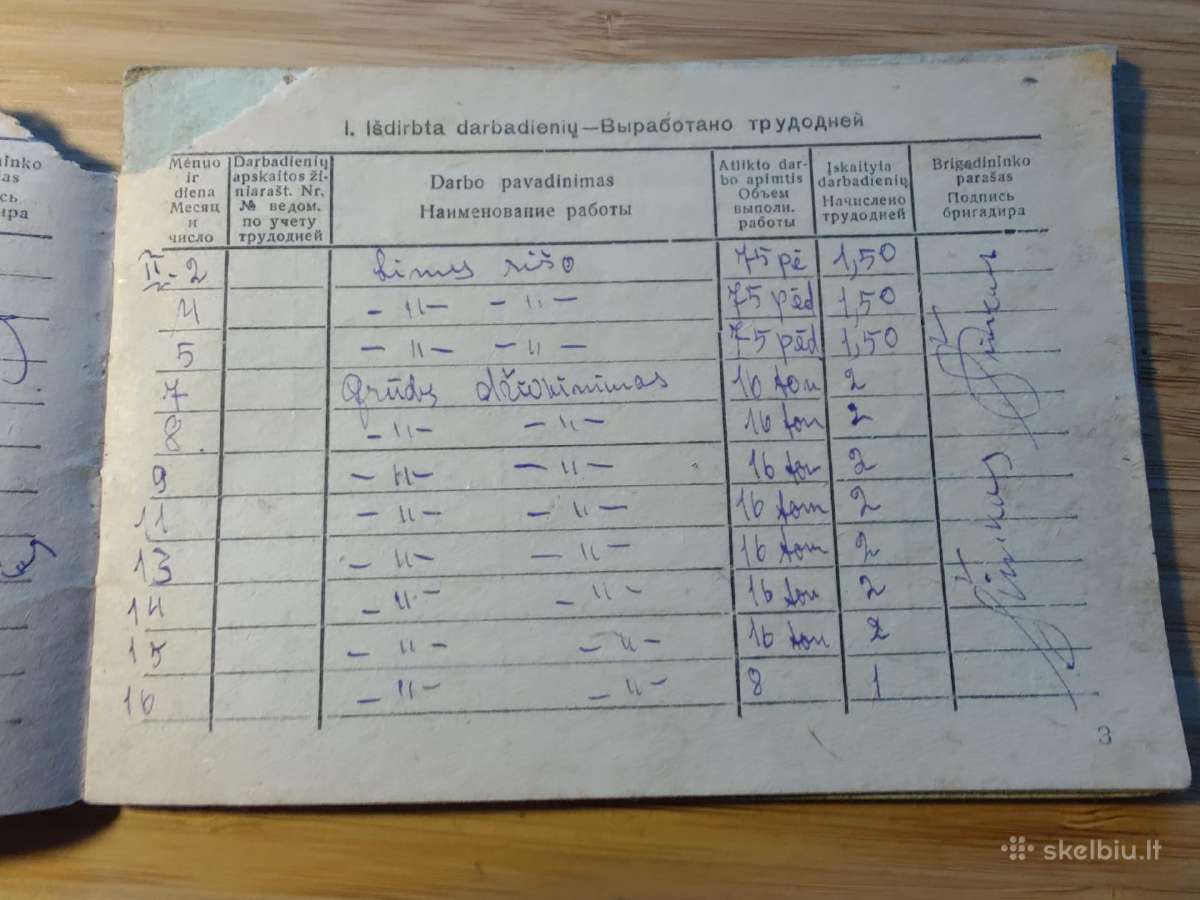 ninko
šas
ись
ира
I. Išdirbta darbadienių—Выработано трудодней
Mėnuo ir diena Месяц и число
Darbadienių apskaitos žiniarašt. Nr. № ведом. по учету трудодней
Darbo pavadinimas
Наименование работы
Atlikto darbo apimtis Объем выполн. работы
Įskaityta darbadienių Начислено трудодней
Brigadininko parašas Подпись бригадира
II-2 rišo 75 pė 1,50
4 –"– –"– 75 pėd 1,50
5 –"– –"– 75 pėd 1,50
7 Grūdų džiovinimas 16 ton 2
8 –"– –"– 16 ton 2
9 –"– –"– 16 ton 2
11 –"– –"– 16 ton 2
13 –"– –"– 16 ton 2
14 –"– –"– 16 ton 2
15 –"– –"– 16 ton 2
16 –"– –"– 8 1
3
skelbiu.lt